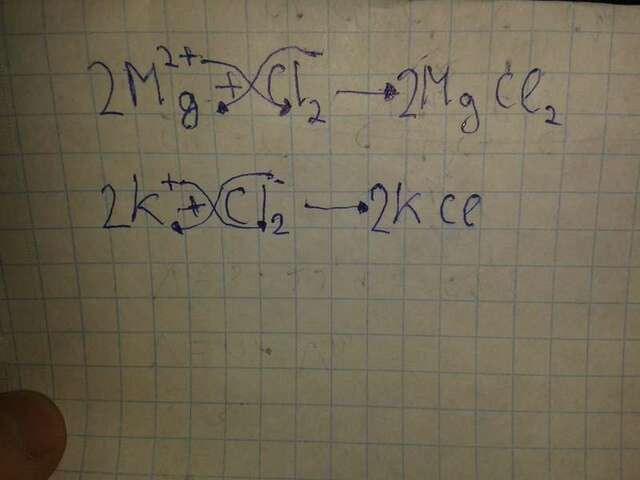 2Mg²⁺ + Cl₂⁻ → 2MgCl₂
2K⁺ + Cl₂⁻ → 2KCl